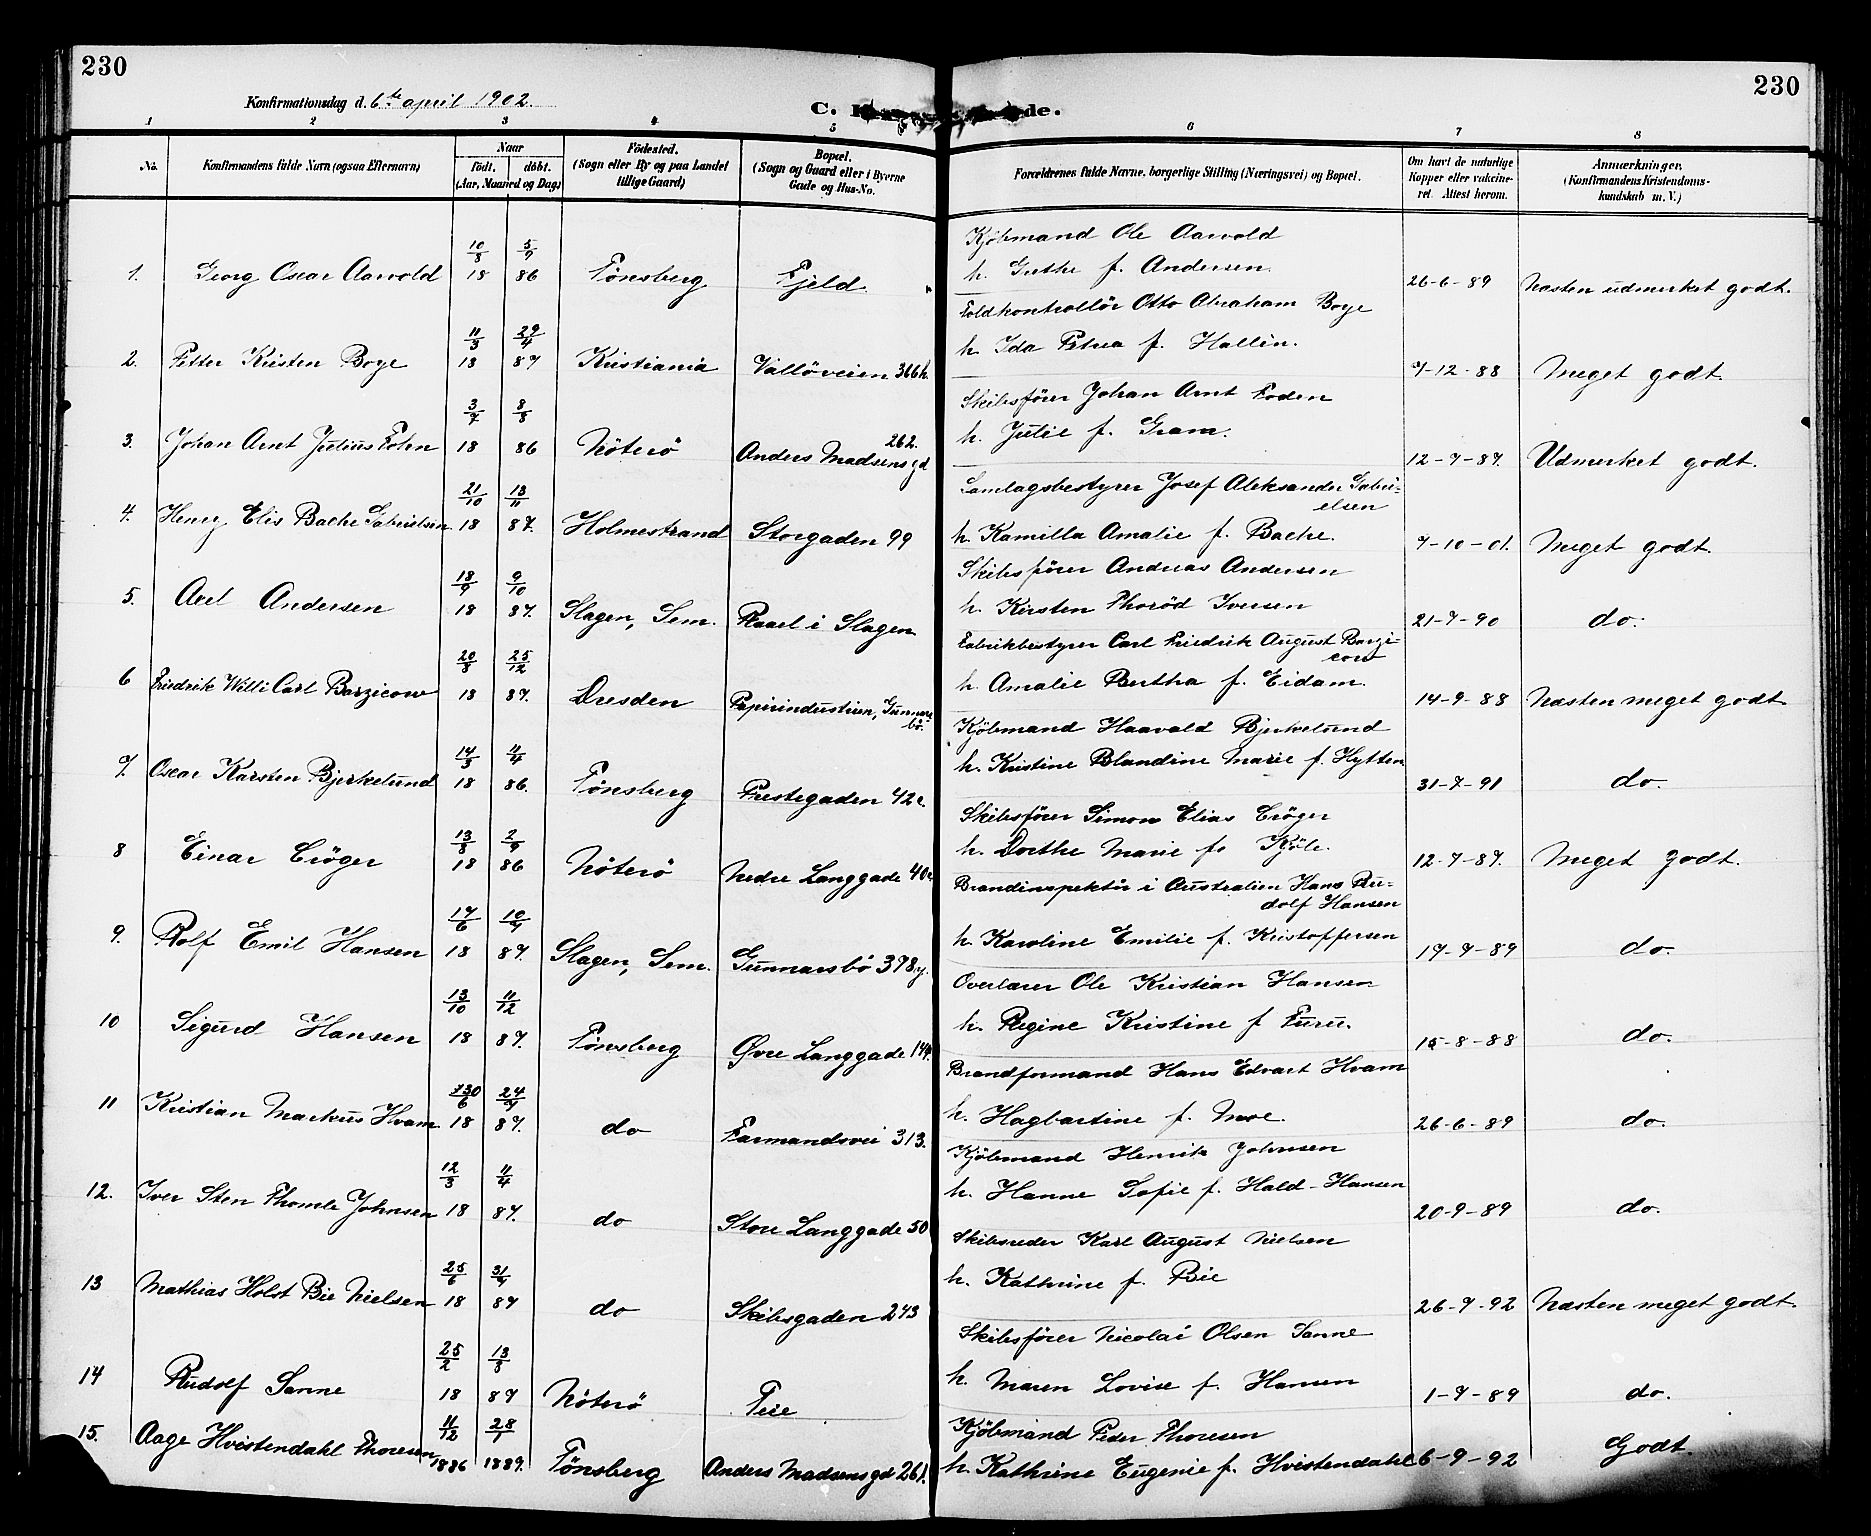 230
230
Konfirmationsdag d. 6te april 1902.
C. de.
1 2 3 4 5 6 7 8
No.
Konfirmandens fulde Navn (ogsaa Efternavn)
Naar
født. døbt.
(Aar, Maaned og Dag)
Fødested.
(Sogn eller By og paa Landet
tillige Gaard)
Bopæl.
(Sogn og Gaard eller i Byerne
Gade og Hus-No.
Forældrenes fulde Navne, borgerlige Stilling (Næringsvei) og Bopæl.
Om havt de naturlige
Kopper eller vaccine-
ret. Attest herom.
Anmærkninger.
(Konfirmandens Kristendoms-
kundskab m. V.)
Kjöbmand Ole Aarvold
1. Georg Oscar Aarvold 10/8 18 5/9 86 Tönsberg Fjeld h. Grethe f. Andersen. 26-6-89 Næsten udmerket godt.
Toldkontrollör Otto Abraham Boye
2. Petter Kristen Boye 11/3 18 29/4 87 Kristiania Vallöveien 366h. h. Ida Petrea f. Hallin. 7-12-88 Meget godt.
Skibsförer Johan Arnt Foden
3. Johan Arnt Julius 3/7 18 8/8 86 Nöterö Anders Madsens gd 262. h. Julie f. Gram. 12-7-87. Udmerket godt.
Samlagsbestyrer Josef Aleksander Gabri-
elsen
4. Henry Elis Bache Gabrielsen 21/10 18 13/11 87. Holmestrand Storgaden 99 h. Kamilla Amalie f. Bache. 7-10-01. Meget godt.
Skibsförer Andreas Andersen
5. Axel Andersen 18/9 18 9/10 87. Slagen, Sem. Raael i Slagen h. Kirsten Thoröd Iversen 21-7-90 do.
Fabrikbestyrer Carl Friedrik August Barzi-
cow
6 Friedrik Willi Carl Barzicow 20/8 18 25/12 87. Dresden Papirindustrien, Gunnars-
bö. h. Amalie Bertha f. Eidam. 14-9-88 Næsten meget godt.
Kjöbmand Haavald Bjerkelund
7. Oscar Karsten Bjerkelund 14/3 18 11/4 86. Tönsberg Prestegaden 42c. h. Kristine Blandine Marie f. Hytten 31-7-91 do.
Skibsförer Simon Elias Cröger
8 Einar Cröger 13/8 18 2/9 86 Nöterö Nedre Langgade 40 h. Dorthe Marie f. 12-7-87. Meget godt.
Brandinspektör i Australien Hans Ru-
dolf Hansen
9. Rolf Emil Hansen 17/6 18 10/7 87. Slagen, Sem. Gunnarsbö 378y. h. Karoline Emilie f. Kristoffersen 17-7-89 do.
Overlærer Ole Kristian Hansen
10 Sigurd Hansen 13/10 18 11/12 87. Tönsberg Øvre Langgade 144. h. Regine Kristine f Furu. 15-8-88 do.
Brandformand Hans Edvart Hvam
11 Kristian Markus Hvam 30/6 18 24/7 87. do Farmandsvei 313. h. Hagbartine f. Moe. 26-6-89 do.
Kjöbmand Henrik Johnsen
12. Iver Sten Thomle Johnsen 12/3 18 11/4 87. do Store Langgade 50 h. Hanne Sofie f. Hald-Hansen 20-9-89 do.
Skibsreder Karl August Nielsen
13 Mathias Holst Bie Nielsen 25/6 18 31/7 87 do Skibsgaden 243 h. Kathrine f. Bie 26-7-92 Næsten meget godt.
Skibsförer Nicolai Olsen Sanne
14 Rudolf Sanne 25/2 18 13/3 87 Nöterö Teie h. Maren Lovise f. Hansen 1-7-89 do.
Kjöbmand Peder Thoresen
15. Aage Hvistendahl Thoresen 11/12 1886 28/1 1889. Tönsberg Anders Madsens gd 261. h. Kathrine Eugenie f. Hvistendahl 6-9-92 Godt.